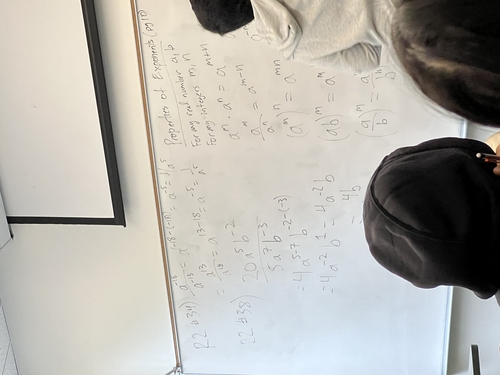 22 #34) a^-18 / a^-13 = a^(-18-(-13)) = a^-5 = 1/a^5
= a^13 / a^18 = a^(13-18) = a^-5 = 1/a^5
22 #38) 20a^5 b^-2 / 5a^7 b^-3
= 4a^(5-7) b^(-2-(-3))
= 4a^-2 b^1 = 4a^-2 b
= 4b
Properties of Exponents
For any real number a, b
For any integers m, n
a^m · a^n = a^(m+n)
a^m / a^n = a^(m-n)
(a^m)^n = a^(mn)
(ab)^m = a^m
(a/b)^m =